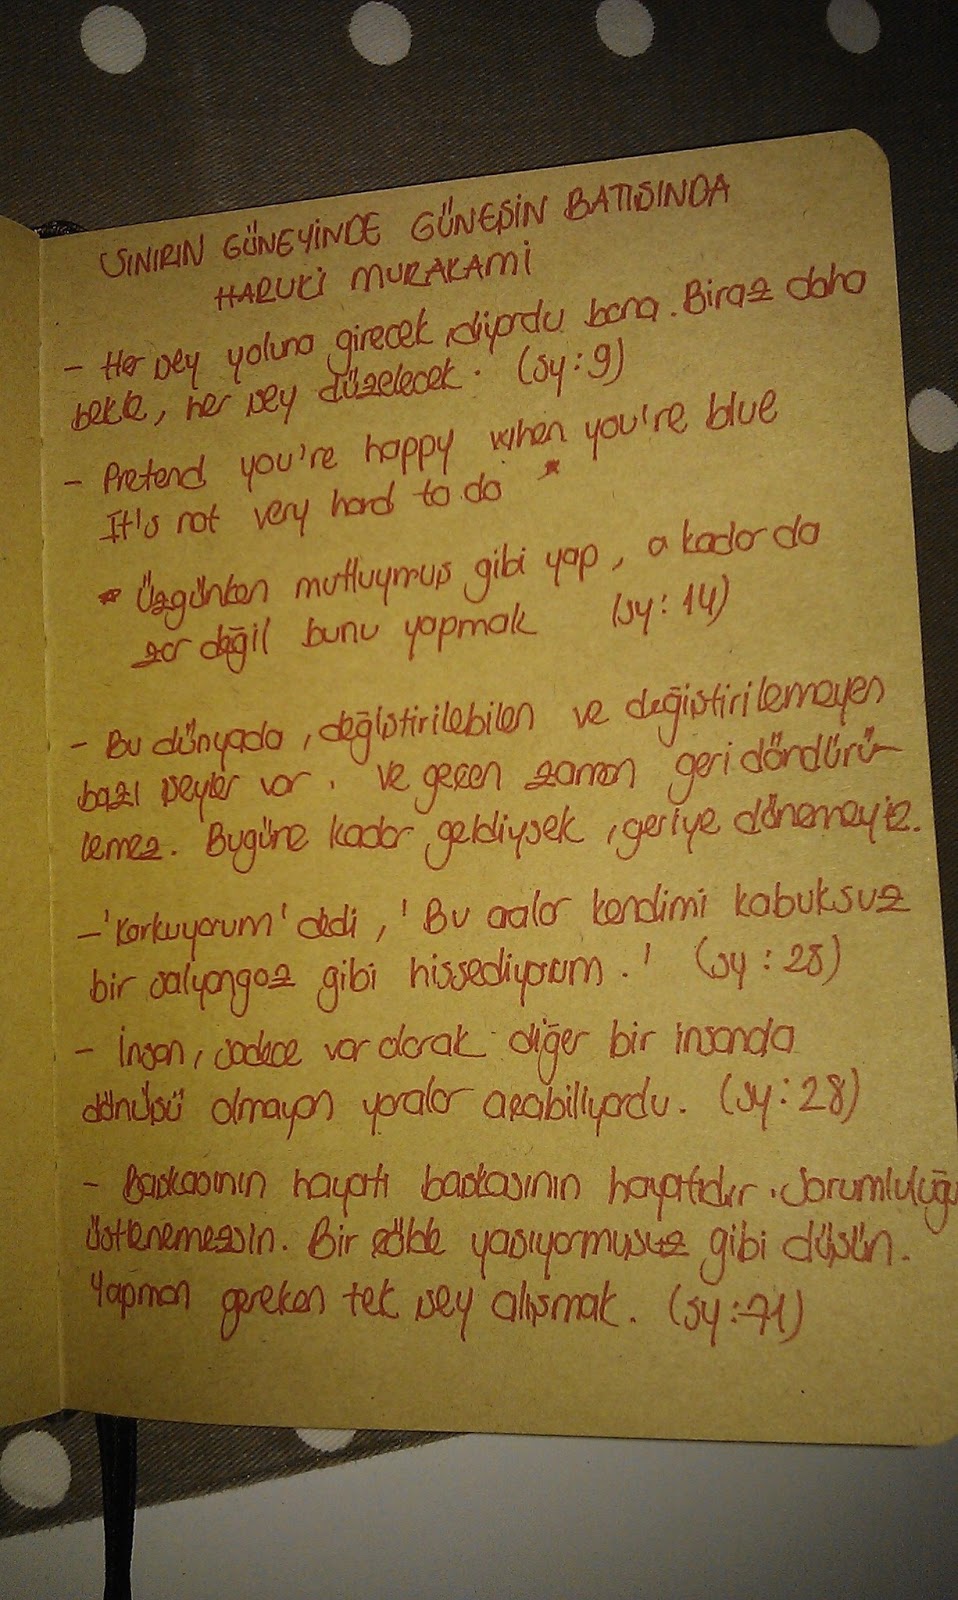 SINIRIN GÜNEYİNDE GÜNEŞİN BATISINDA
HARUKİ MURAKAMİ
- Her şey yoluna girecek, diyordu bana. Biraz daha
bekle, her şey düzelecek. (sy:9)
- Pretend you're happy when you're blue
It's not very hard to do *
* Üzgünken mutluymuş gibi yap, o kadar da
zor değil bunu yapmak (sy:14)
- Bu dünyada, değiştirilebilen ve değiştirilemeyen
bazı şeyler var. Ve geçen zaman geri döndürü-
lemez. Bugüne kadar geldiysek, geriye dönemeyiz.
- 'Korkuyorum' dedi, 'Bu aralar kendimi kabuksuz
bir salyangoz gibi hissediyorum.' (sy:28)
- İnsan, sadece var olarak diğer bir insanda
dönüşü olmayan yaralar açabiliyordu. (sy:28)
- Başkasının hayatı başkasının hayatıdır. Sorumluluğu
üstlenemezsin. Bir çölde yaşıyormuşuz gibi düşün.
Yapman gereken tek şey alışmak. (sy:71)